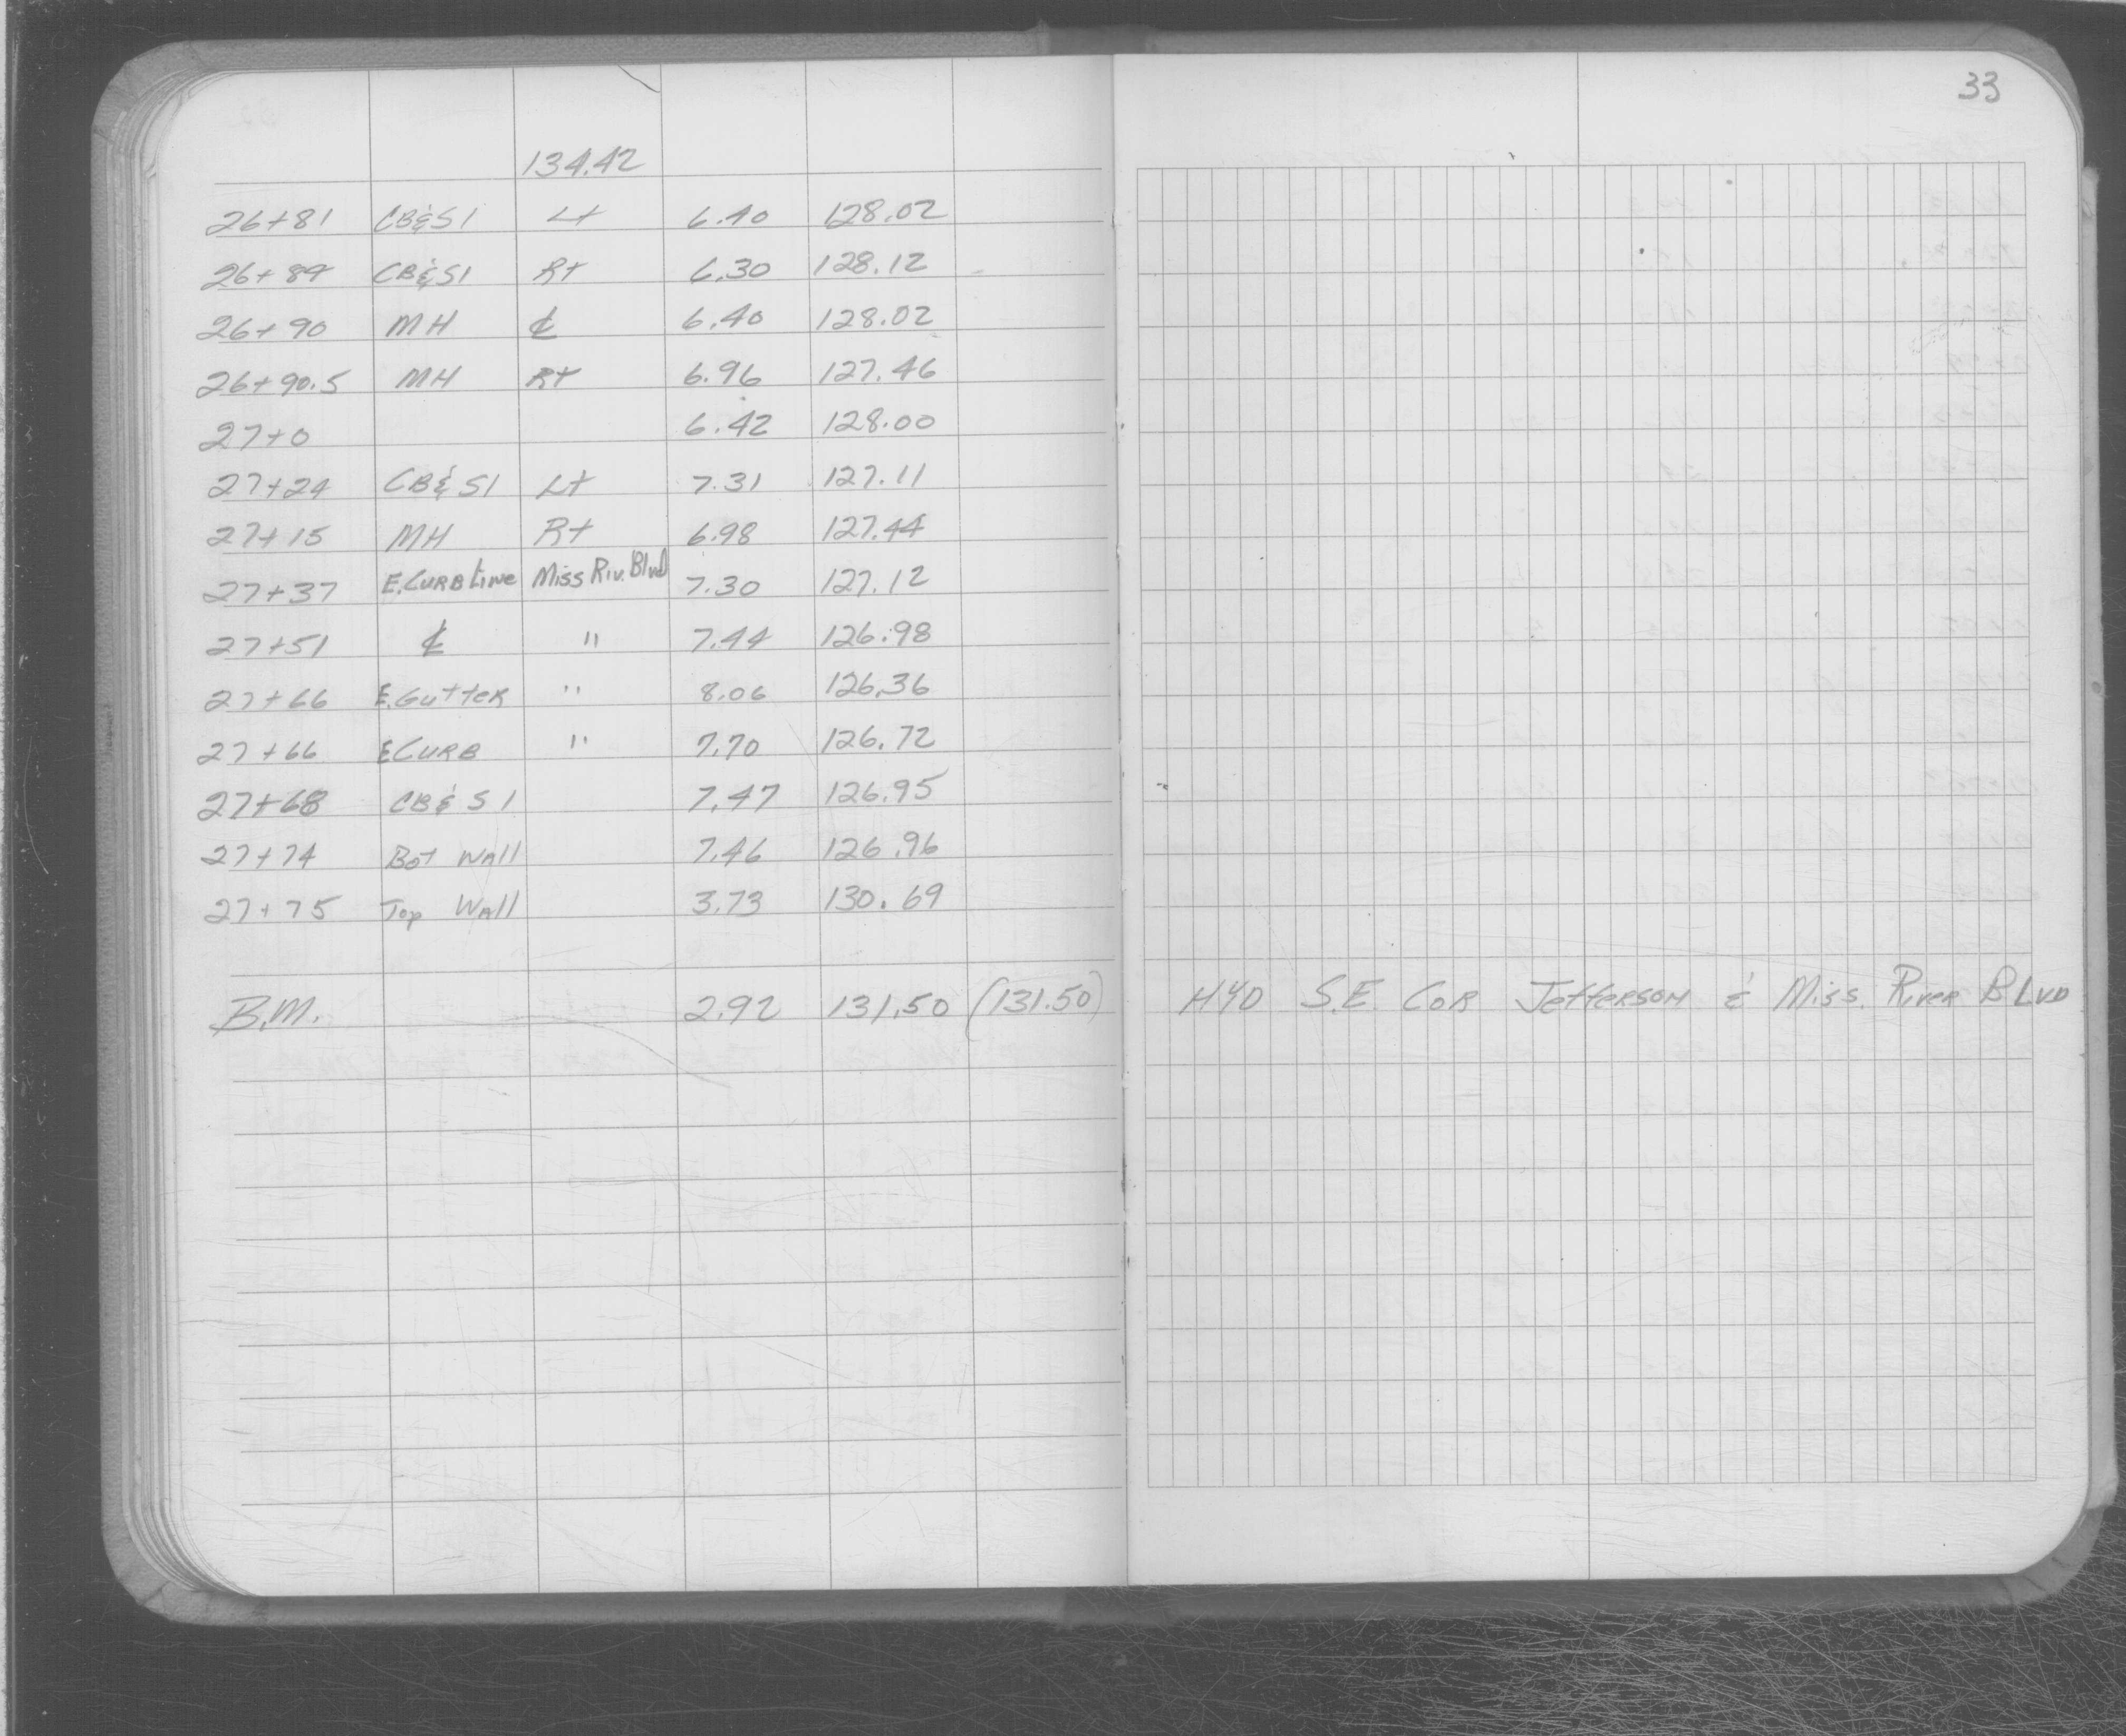 33
134.42
26+81 CB&SI Lt 6.40 128.02
26+89 CB&SI Rt 6.30 128.12
26+90 MH ℄ 6.40 128.02
26+90.5 MH Rt 6.96 127.46
27+0 6.42 128.00
27+24 CB&SI Lt 7.31 127.11
27+15 MH Rt 6.98 127.44
27+37 E. CURB Line Miss Riv. Blvd 7.30 127.12
27+51 ℄ " 7.44 126.98
27+66 E. Gutter " 8.06 126.36
27+66 E CURB " 7.70 126.72
27+68 CB&SI 7.47 126.95
27+74 Bot Wall 7.46 126.96
27+75 Top Wall 3.73 130.69
B.M. 2.92 131.50 (131.50) HYD S.E. COR Jefferson & Miss. River BLVD